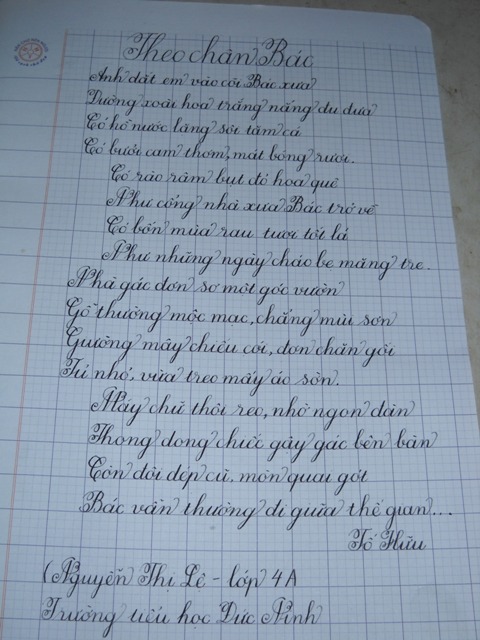 Theo chân Bác
Anh dắt em vào cõi Bác xưa
Đường xoài hoa trắng nắng đu đưa
Có hồ nước lặng sôi tăm cá
Có bưởi cam thơm, mát bóng rươi.
Có rào râm bụt đỏ hoa quê
Như cổng nhà xưa Bác trở về
Có bốn mùa rau tươi tốt lá
Như những ngày cháo bẹ măng tre.
Nhà gác đơn sơ một góc vườn
Gỗ thường mộc mạc, chẳng mùi sơn
Giường mây chiếu cói, đơn chăn gối
Tủ nhỏ, vừa treo mấy áo sờn.
Máy chữ thôi reo, nhớ ngón đàn
Thong dong chiếc gậy gác bên bàn
Còn đôi dép cũ, mòn quai gót
Bác vẫn thường đi giữa thế gian...
Tố Hữu
(Nguyễn Thị Lệ - lớp 4A
Trường tiểu học Đức Ninh